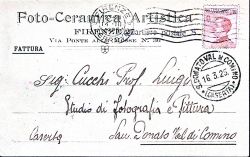 Foto-Ceramica Artistica
FIRENZE
Via Ponte alle Mosse N. 30
FATTURA
Sig: Cucchi Prof. Luigi
Studio di Fotografia e Pittura
Caserta San Donato Val di Comino
16.3.23